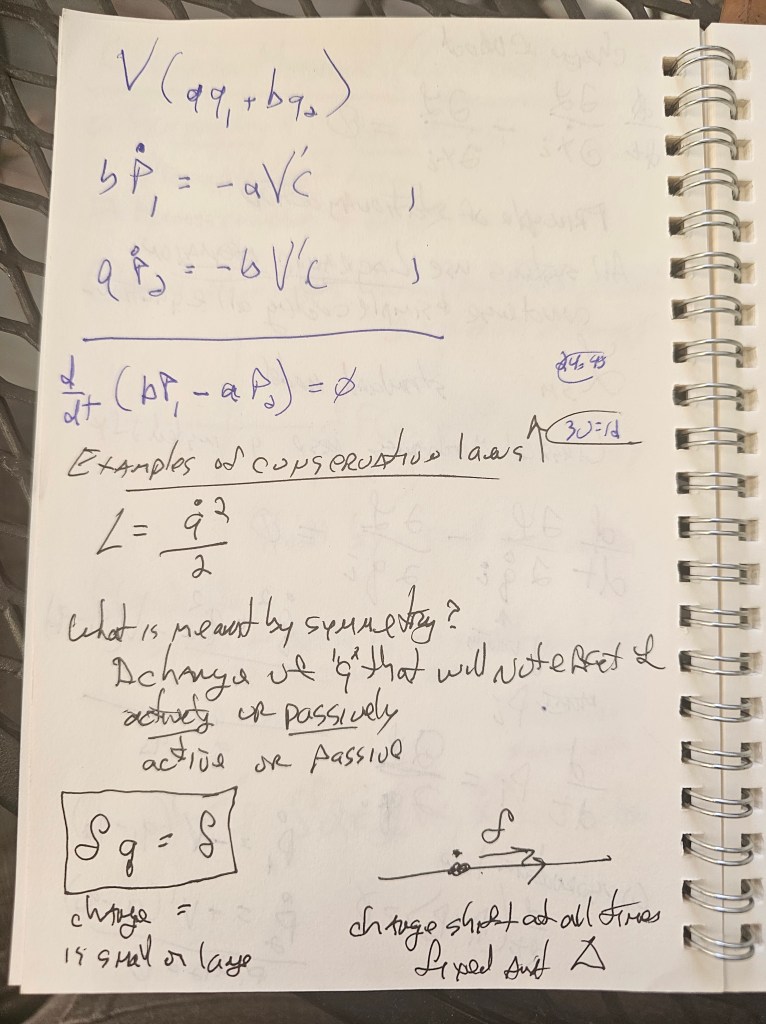 V(aq₁ + bq₂)
bṖ₁ = -aV'C ,
aṖ₂ = -bV'C ,
d/dt (bP₁ - aP₂) = ∅
30=12
Examples of conservative laws ↑
L = q̇²/2
What is meant by symmetry?
A change of "q" that will not effect L
actively or passively
active or passive
δq = δ
δ
change =
is small or large
change shift at all times
fixed Δ